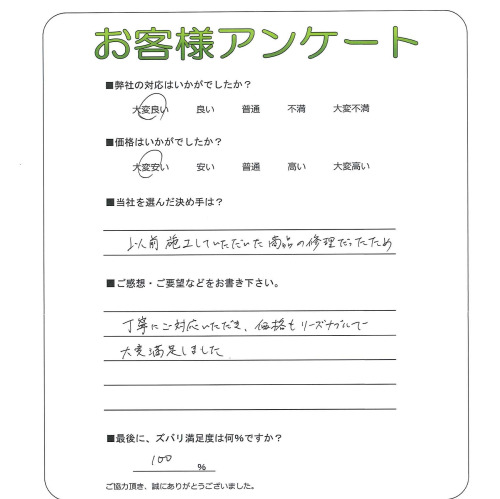 お客様アンケート
■弊社の対応はいかがでしたか？
大変良い 良い 普通 不満 大変不満
■価格はいかがでしたか？
大変安い 安い 普通 高い 大変高い
■当社を選んだ決め手は？
以前施工していただいた商品の修理だったため
■ご感想・ご要望などをお書き下さい。
丁寧にご対応いただき、価格もリーズナブルで
大変満足しました
■最後に、ズバリ満足度は何%ですか？
100 %
ご協力頂き、誠にありがとうございました。